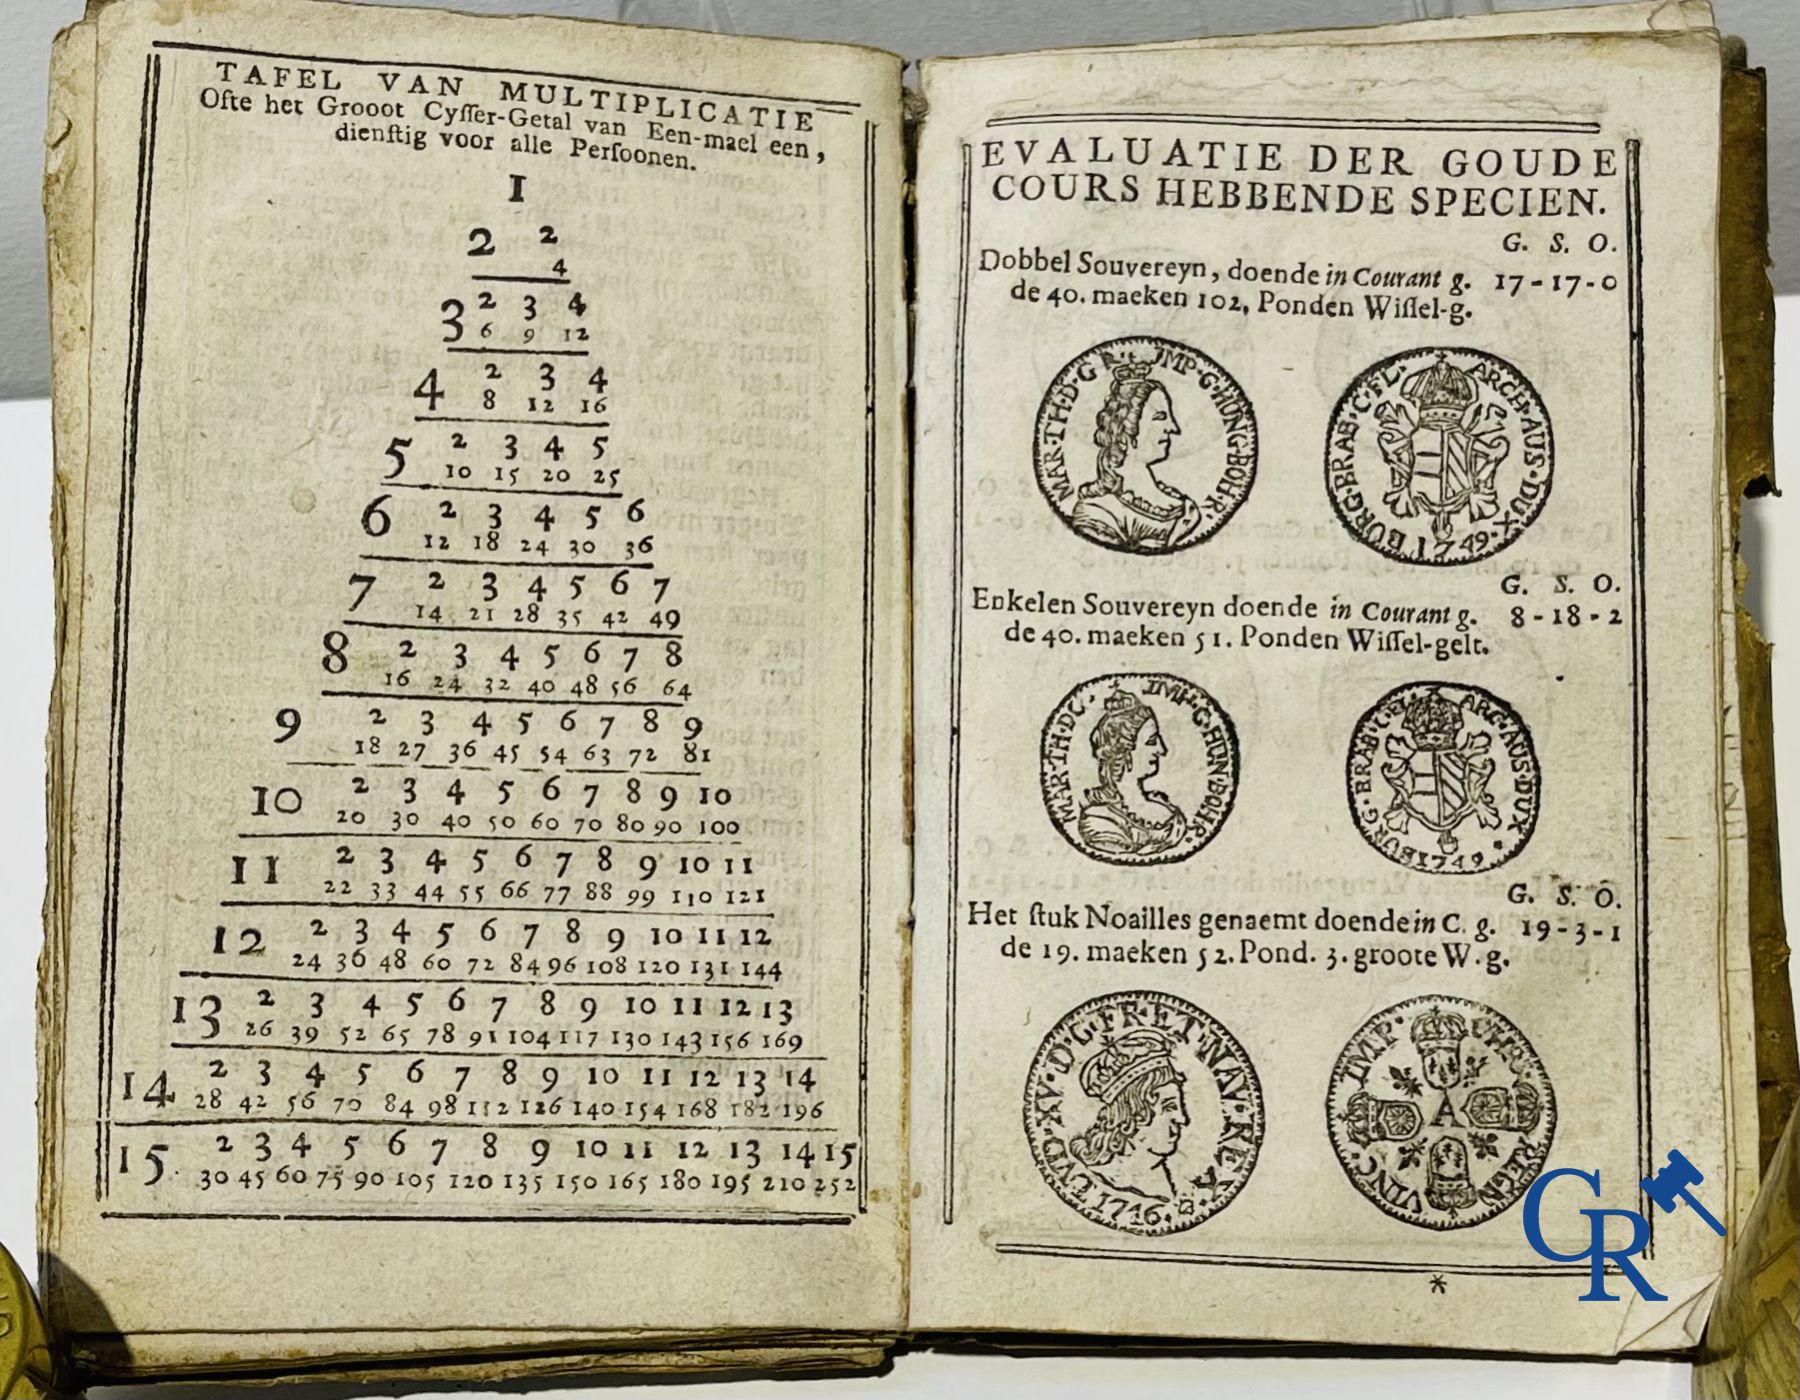 TAFEL VAN MULTIPLICATIE
Ofte het Grooot Cyffer-Getal van Een-mael een,
dienſtig voor alle Perſoonen.
1
2 2
4
3 2 3 4
6 9 12
4 2 3 4
8 12 16
5 2 3 4 5
10 15 20 25
6 2 3 4 5 6
12 18 24 30 36
7 2 3 4 5 6 7
14 21 28 35 42 49
8 2 3 4 5 6 7 8
16 24 32 40 48 56 64
9 2 3 4 5 6 7 8 9
18 27 36 45 54 63 72 81
10 2 3 4 5 6 7 8 9 10
20 30 40 50 60 70 80 90 100
11 2 3 4 5 6 7 8 9 10 11
22 33 44 55 66 77 88 99 110 121
12 2 3 4 5 6 7 8 9 10 11 12
24 36 48 60 72 84 96 108 120 131 144
13 2 3 4 5 6 7 8 9 10 11 12 13
26 39 52 65 78 91 104 117 130 143 156 169
14 2 3 4 5 6 7 8 9 10 11 12 13 14
28 42 56 70 84 98 112 126 140 154 168 182 196
15 2 3 4 5 6 7 8 9 10 11 12 13 14 15
30 45 60 75 90 105 120 135 150 165 180 195 210 252
EVALUATIE DER GOUDE
COURS HEBBENDE SPECIEN.
G. S. O.
Dobbel Souvereyn, doende in Courant g. 17-17-0
de 40. maeken 102, Ponden Wiſſel-g.
MAR·TH·D·G R· IMP·G·HUNG·BOH·R·
ARCH·AUS·DUX· BURG·BRAB·C·FL· 1749·
G. S. O.
Enkelen Souvereyn doende in Courant g. 8-18-2
de 40. maeken 51. Ponden Wiſſel-gelt.
MAR·TH·DC· IMH·G·HUN·BOH·R·
ARC·AUS·DUX· BURG·BRAB·C·FL· 1749·
G. S. O.
Het ſtuk Noailles genaemt doende in C. g. 19-3-1
de 19. maeken 52. Pond. 3. groote W.g.
LUD·XV·D·G·FR·ET·NAV·REX· 1716·
CHRS· REGN VINC· IMP·
A
*
CR